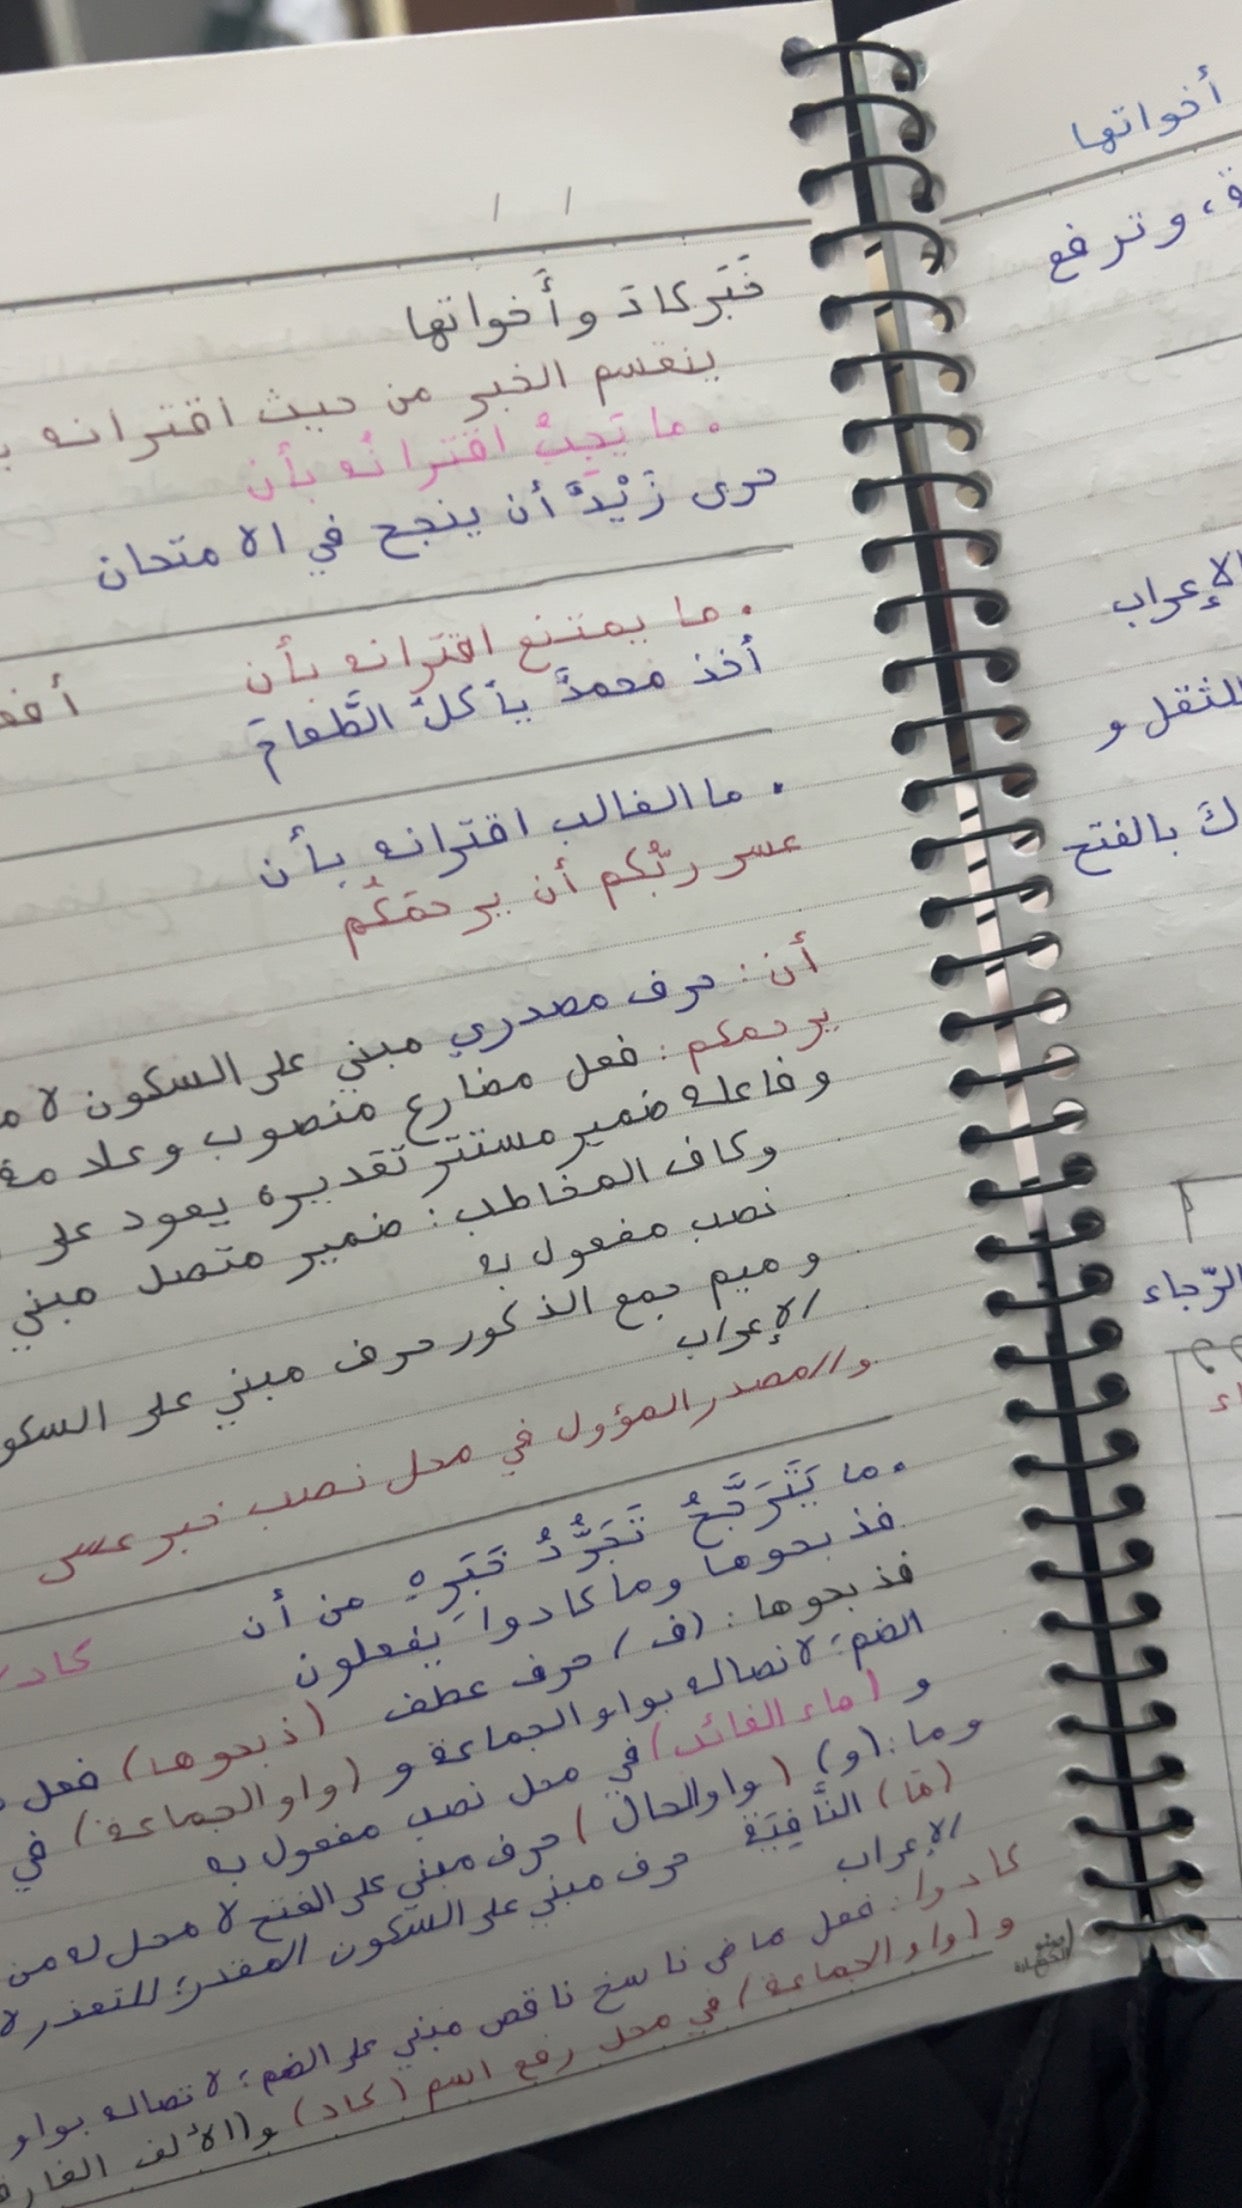 أخواتها
ة، وترفع
الإعراب
للثقل و
كَ بالفتح
الرّجاء
خَبَر كادَ وأَخواتها
ينقسم الخبر من حيث اقترانه
. ما يَجِبُ اقترانُه بأن
حرى زَيْدٌ أن ينجح في الامتحان
. ما يمتنع اقترانه بأن
أخذ محمدٌ يأكلُ الطَّعامَ
. ما الغالب اقترانه بأن
عسى ربُّكم أن يرحمَكُم
أن : حرف مصدري مبني على السكون لا
يرحمكم : فعل مضارع منصوب وعلامة
وفاعله ضمير مستتر تقديره يعود على
وكاف المخاطب : ضمير متصل مبني
نصب مفعول به
وميم جمع الذكور حرف مبني على السكو
الإعراب
والمصدر المؤول في محل نصب خبر عسى
. ما يَتَرَجَّحُ تَجَرُّدُ خَبَرِهِ من أن
كاد
فذبحوها وما كادوا يَفعلون
فذبحوها : (ف) حرف عطف (ذبحوها) فعل
الضم؛ لاتصاله بواو الجماعة و (واو الجماعة) في
و (هاء الغائب) في محل نصب مفعول به
وما : (و) (واو الحال) حرف مبني على الفتح لا محل له من
(مَا) النَّافِيَة حرف مبني على السكون المقدر؛ للتعذر لا
الإعراب
كادوا : فعل ماضي ناسخ ناقص مبني على الضم؛ لاتصاله بواو
و (واو الجماعة) في محل رفع اسم (كاد) و(الألف الفار